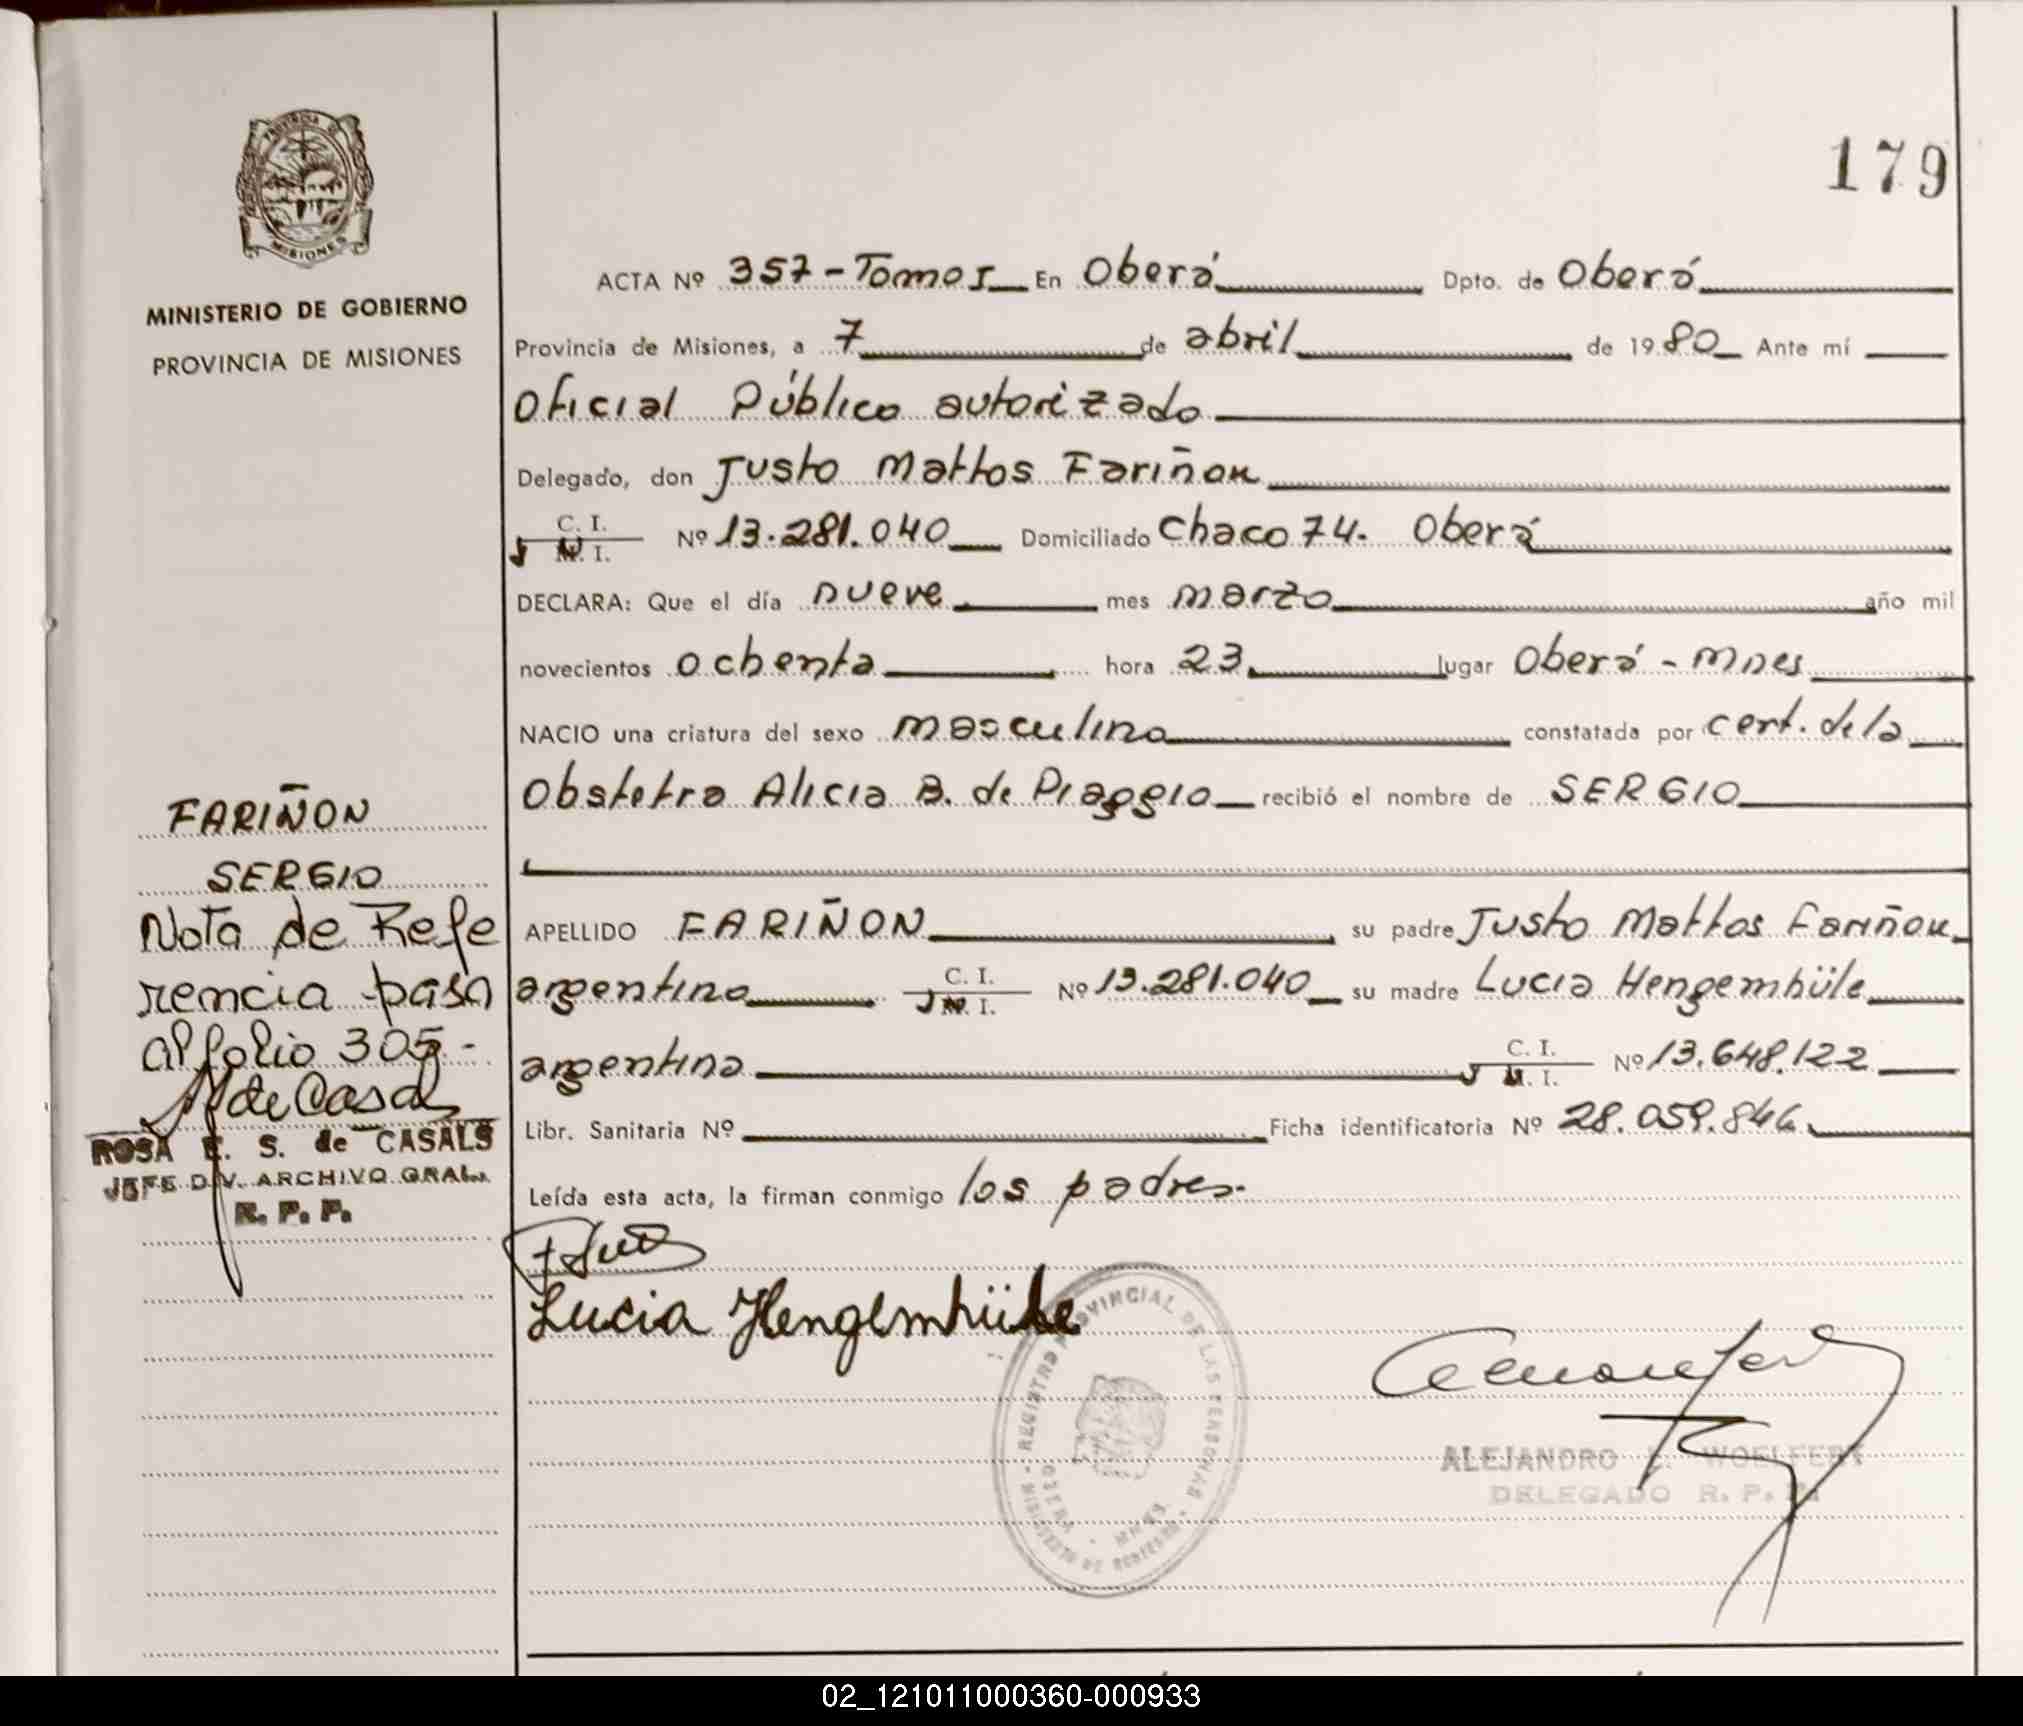 179
PROVINCIA DE
MISIONES
MINISTERIO DE GOBIERNO
PROVINCIA DE MISIONES
ACTA Nº 357 - Tomo I En Oberá Dpto. de Oberá
Provincia de Misiones, a 7 de abril de 1980 Ante mí
Oficial Público autorizado
Delegado, don Justo Mattos Fariñon
C. I.
M. I. Nº 13.281.040 Domiciliado Chaco 74. Oberá
DECLARA: Que el día nueve mes marzo año mil
novecientos ochenta hora 23 lugar Oberá - Mnes
NACIO una criatura del sexo masculino constatada por cert. de la
Obstetra Alicia B. de Piaggio recibió el nombre de SERGIO
APELLIDO FARIÑON su padre Justo Mattos Fariñon
argentino C. I.
M. I. Nº 13.281.040 su madre Lucia Hengemhüle
argentina C. I.
M. I. Nº 13.648.122
Libr. Sanitaria Nº Ficha identificatoria Nº 28.059.846
Leída esta acta, la firman conmigo los padres.
Lucia Hengemhüle
REGISTRO PROVINCIAL DE LAS PERSONAS
MINISTERIO DE GOBIERNO
OBERA - MNES
ALEJANDRO E. WOELFERT
DELEGADO R. P. P.
FARIÑON
SERGIO
Nota de Refe
rencia pasa
al folio 305 -
R de Casals
ROSA E. S. de CASALS
JEFE DIV. ARCHIVO GRAL.
R. P. P.
02_121011000360-000933